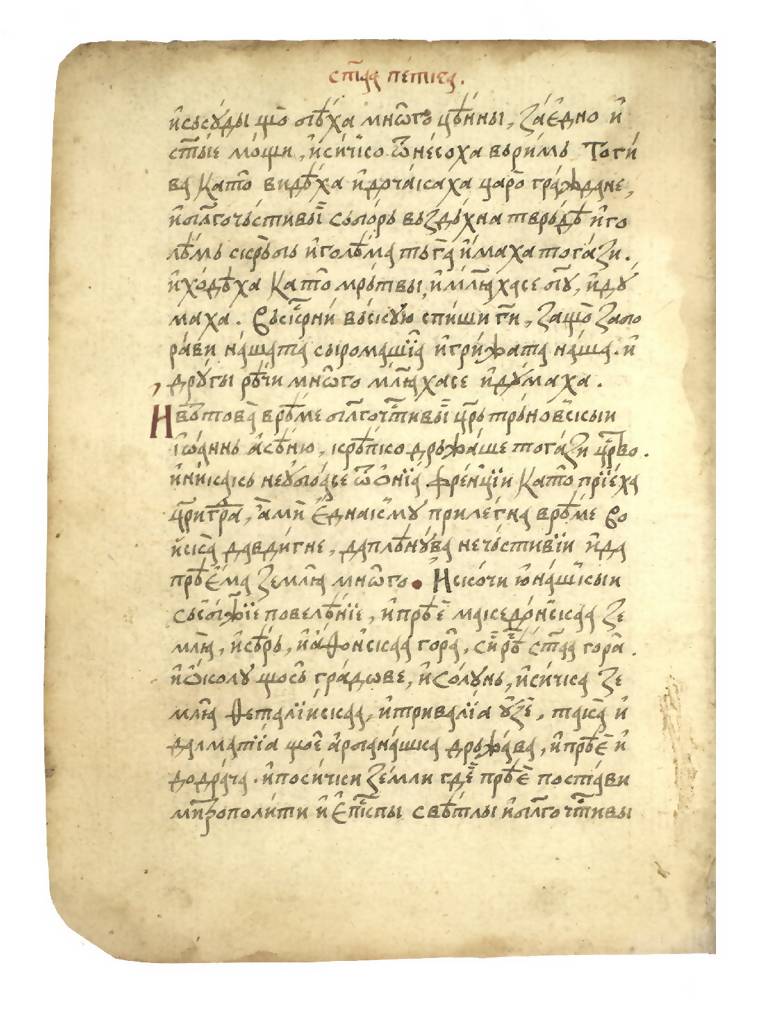 ст҃аа пе́тка.
и҆съсꙋ́ды що̀ бѣ́ха мно̑го цѣ́нны, за́є҆дно и҆
ст҃ы́е мо́щи, и҆си́чко ѿне́соха въри́мь. Тоги́
ва като̀ видѣ́ха и҆дочака́ха царо̀гра́ждане,
и҆бл҃гоче́стивыѝ съборь въздъ́хна твръ́дѣ и҆го
лѣ́мь скръ́бь и҆голѣ́ма тъга̀ и҆ма́ха тога́зи.
и҆хо́дѣха като̀ мрътви, и҆мл҃ꙗ́хасе бг҃ꙋ, и҆дꙋ́
маха. Въскрⷭ҇ни въскꙋю спиши гⷭ҇и, защо̀ забо
ра́ви на́шата сырома́шїа и҆гри́жата на́ша. и҆
дрꙋ́гы рѣ́чи мно̑го мл҃ꙗ́хасе и҆дꙋ́маха.
И въ́това̀ врѣ́ме бл҃гочⷭ҇тивыѝ цр҃ь тръ́новскыи
і҆ѡ҆а́ннь а҆сѣ́ню, крѣ́пко дръжа́ше тога́зи црⷭ҇тво.
и҆ни́какь неꙋ҆боа́се ѿ о҆нїа̀ фре́нѕїи като̀ прїе́ха
цр҃игра̀, а҆мѝ є҆днакъмꙋ̀ приле́гна врѣ́ме во
йска̀ давди́гне, даплѣ́нꙋва нечь́стивїи и҆да
прѣ́е҆ма землꙗ̀ мно̑го. И҆скочи ю҆нашкыи
съсбж҃їе повелѣ́нїе, и҆прѣ́е҆ македо́нскаа зе
млꙗ̀, и҆сѣ́рь, и҆а҆ѳо́нскаа гора̀, си́рѣⷱ҇ ст҃аа гора̀.
и҆о҆́колꙋ що̀сѫ̀ гра́дове, и҆со́лꙋнь, и҆си́чка зе
млꙗ̀ ѳетали́йскаа, и҆трива́лїа ꙋ҆зѐ, така̀ и҆
далма́тїа що̀е҆ а҆рбана́шка дръжа́ва, и҆прѣ́е҆ и҆
додра́ча. и҆поси́чки зе́мли где́ прѣ́е҆ поста́ви
митрополи́ти и҆ е҆пⷭ҇кпы свѣ́тлы и҆бл҃гочⷭ҇тивы